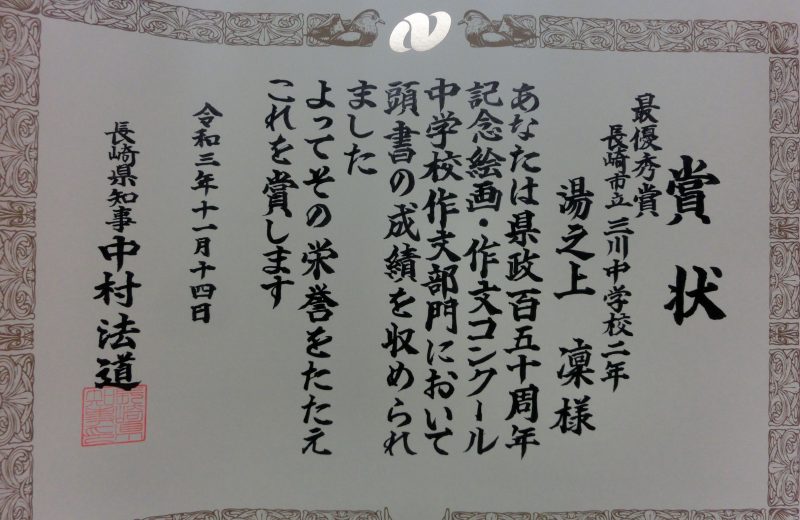 賞状
最優秀賞
長崎市立 三川中学校二年
湯之上 凜様
あなたは県政百五十周年
記念絵画・作文コンクール
中学校作文部門において
頭書の成績を収められ
ました
よってその栄誉をたたえ
これを賞します
令和三年十一月十四日
長崎県知事 中村法道